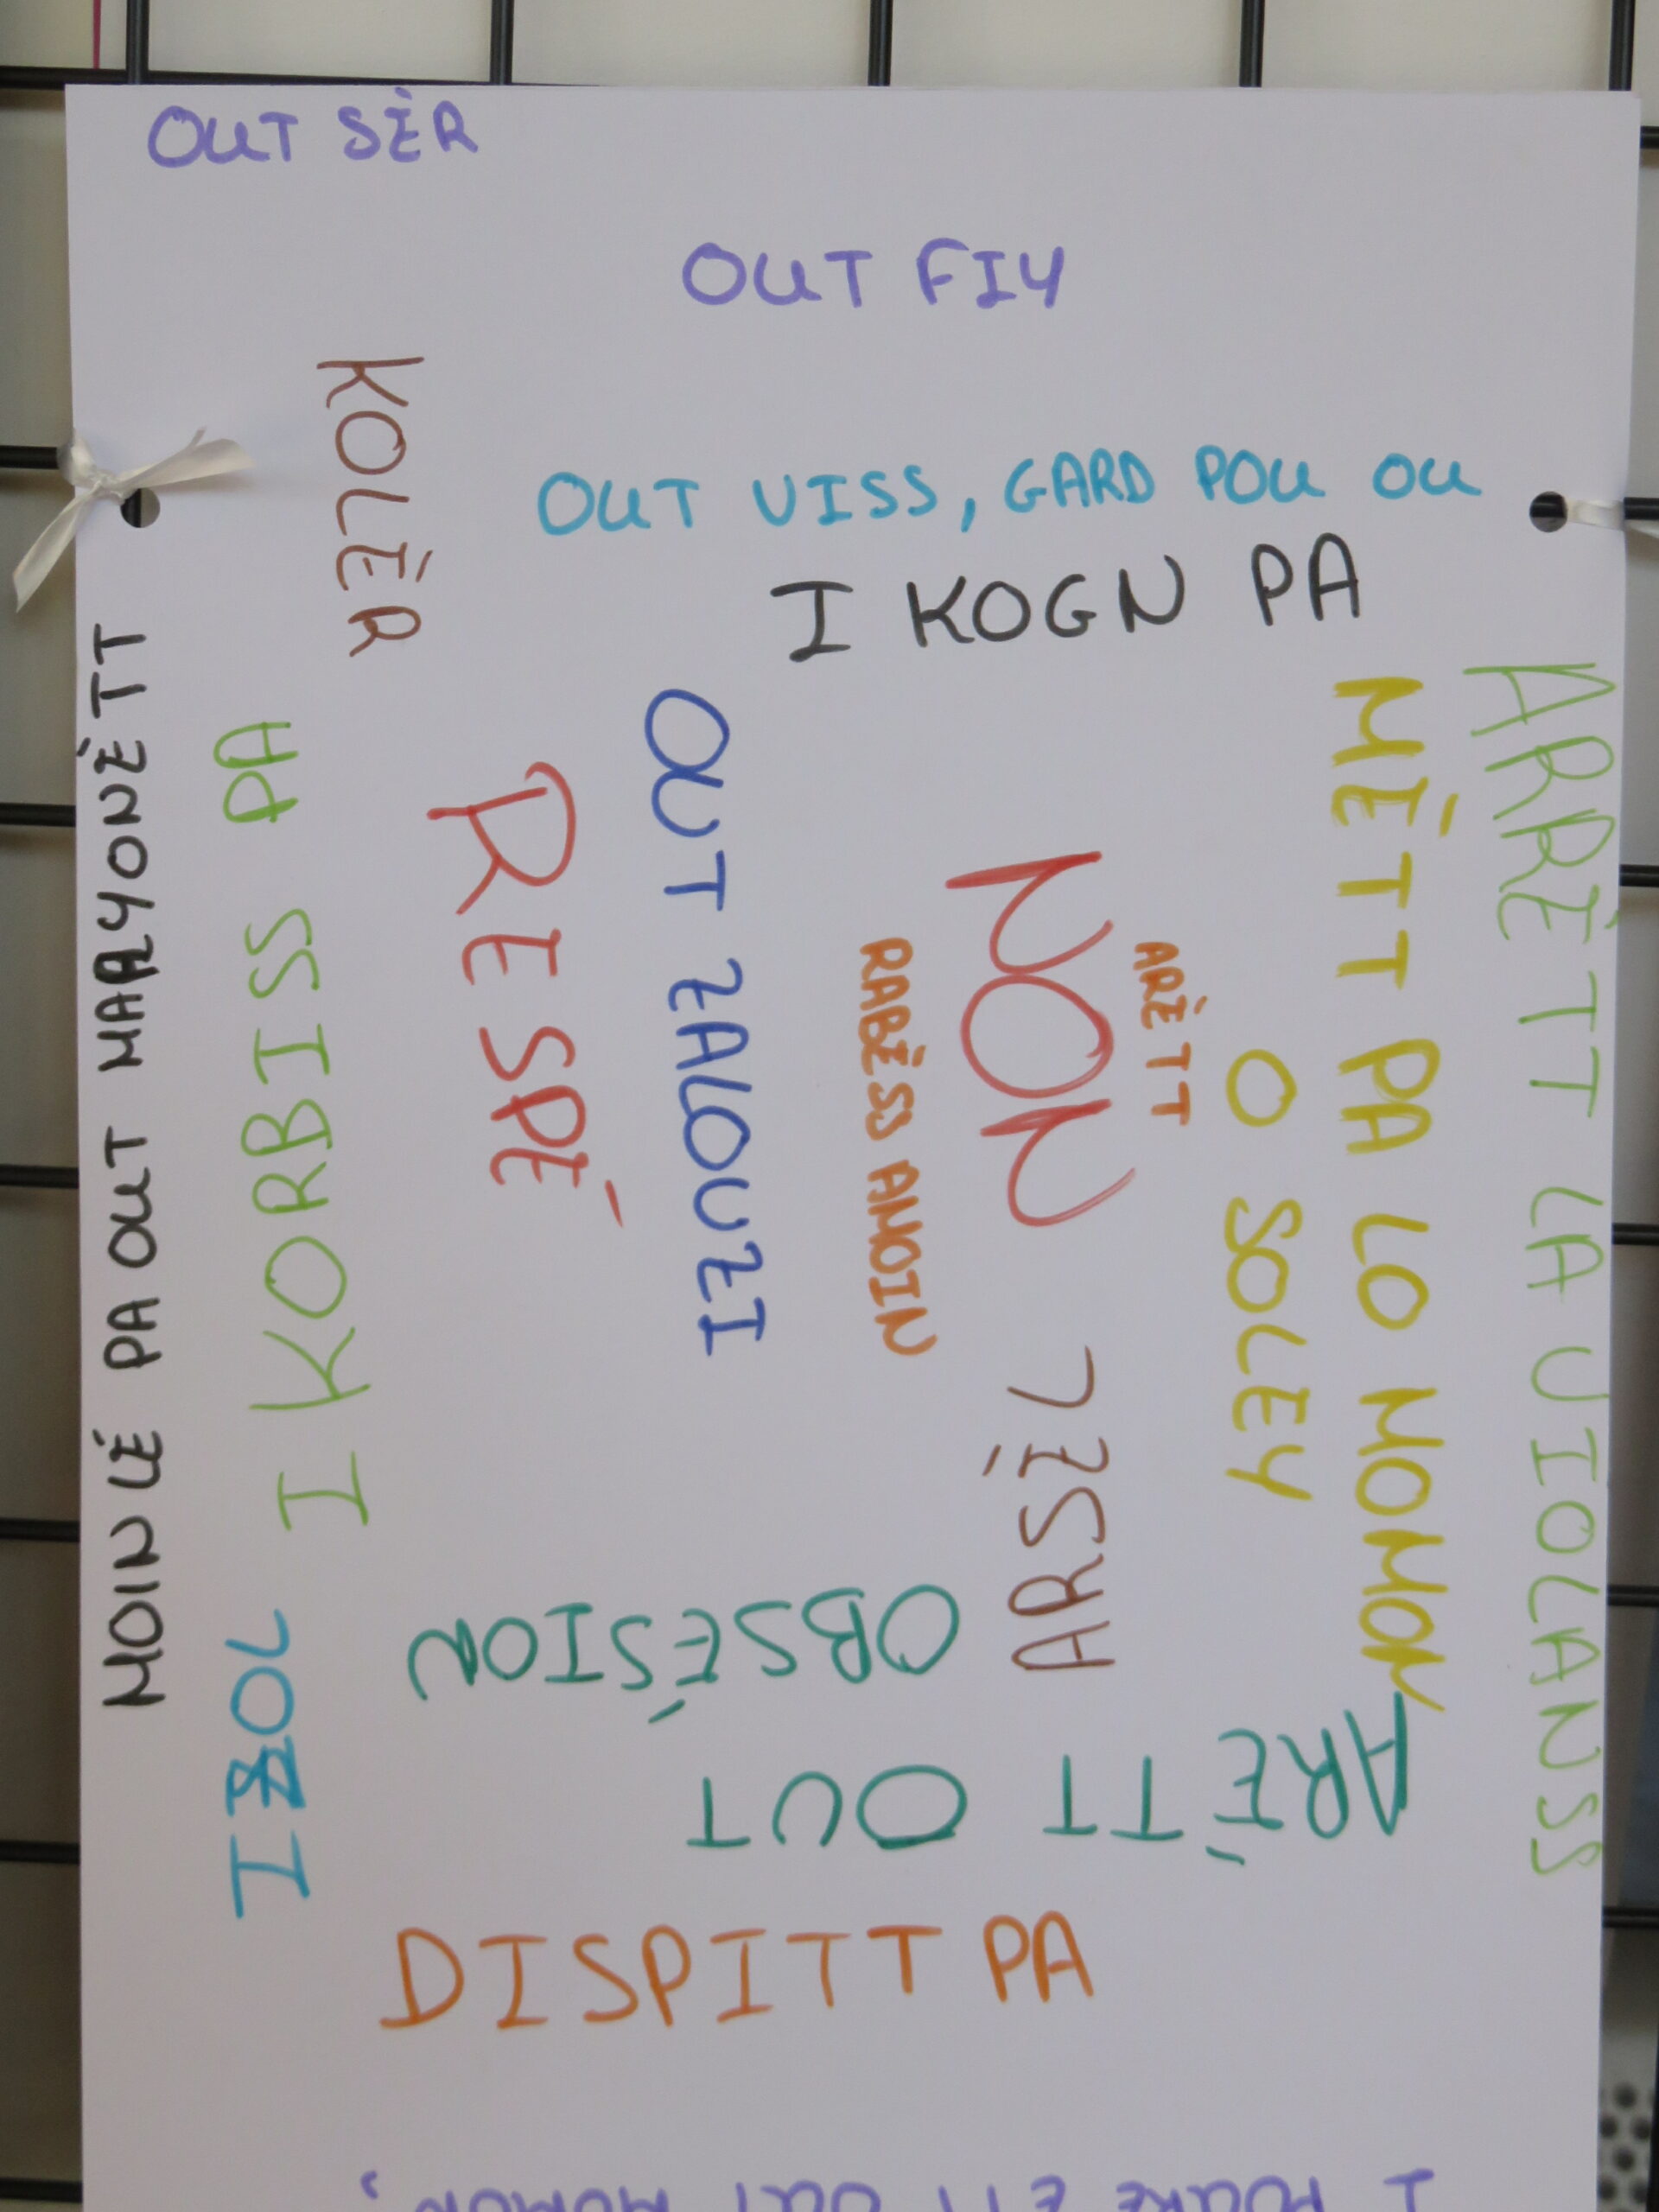 OUT SÈR
OUT FIY
KOLÈR
OUT VISS, GARD POU OU
I KOGN PA
ARÈTT LA VIOLANSS
MÈTT PA LO MOMON
O SOLEY
ARÈTT
NON
RABÈSS AMOIN
OUT ZALOUZI
RESPÉ
I KORBISS PA
MOIN LÉ PA OUT MARYONÉTT
ARSÈL
IZOL
ARÈTT OUT
OBSÉSION
DISPITT PA
OUT MOMON,